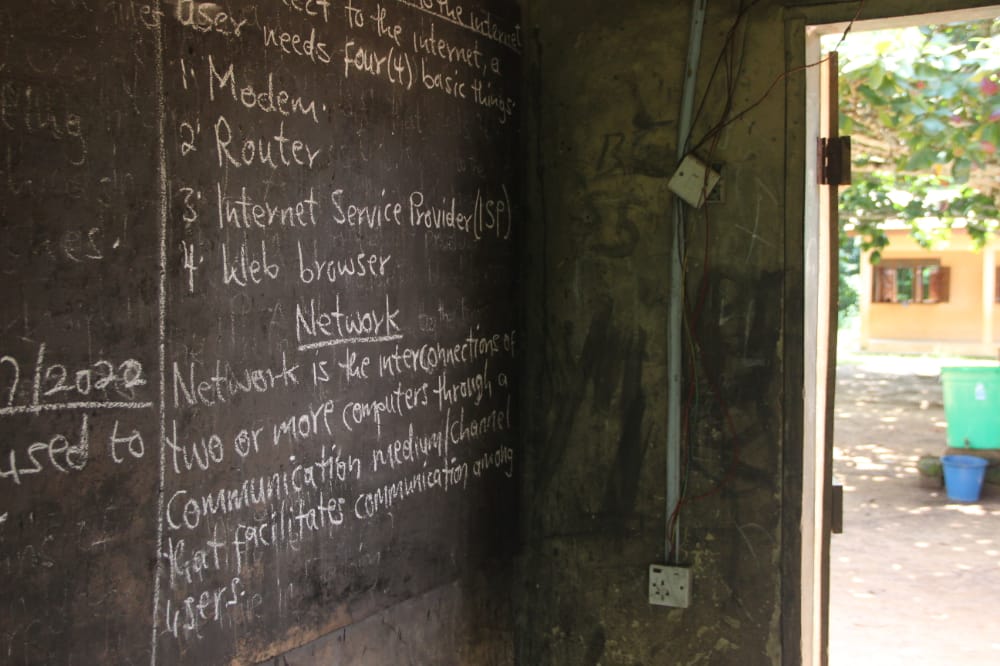 to the internet
to the internet, a
user needs four(4) basic things.
1: Modem.
2: Router
3: Internet Service Provider(ISP)
4: Web browser
Network
Network is the interconnections of
two or more computers through a
communication medium/channel
that facilitates communication among
users.
7/2022
used to